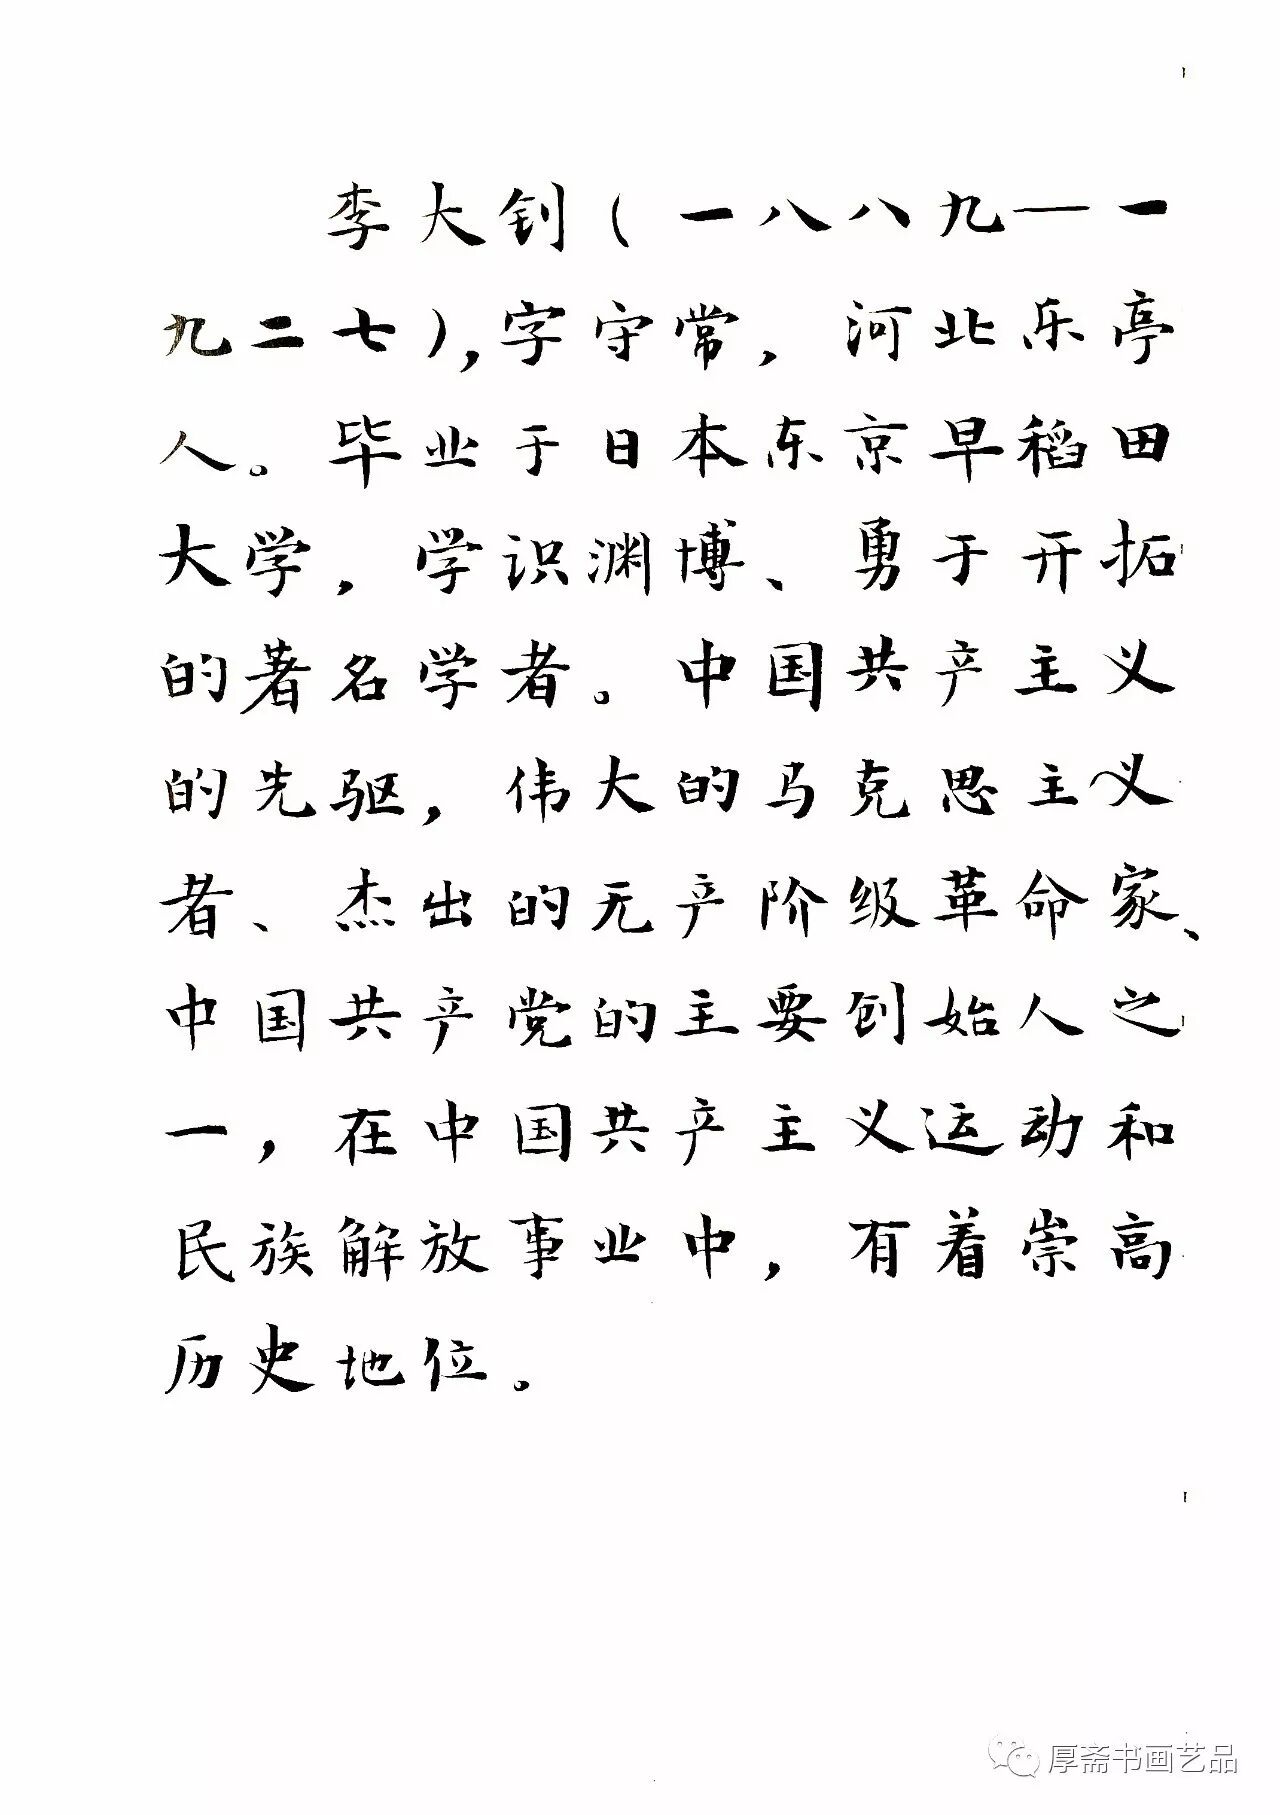 李大钊(一八八九—一
九二七),字守常，河北乐亭
人。毕业于日本东京早稻田
大学，学识渊博、勇于开拓
的著名学者。中国共产主义
的先驱，伟大的马克思主义
者、杰出的无产阶级革命家、
中国共产党的主要创始人之
一，在中国共产主义运动和
民族解放事业中，有着崇高
历史地位。
厚斋书画艺品